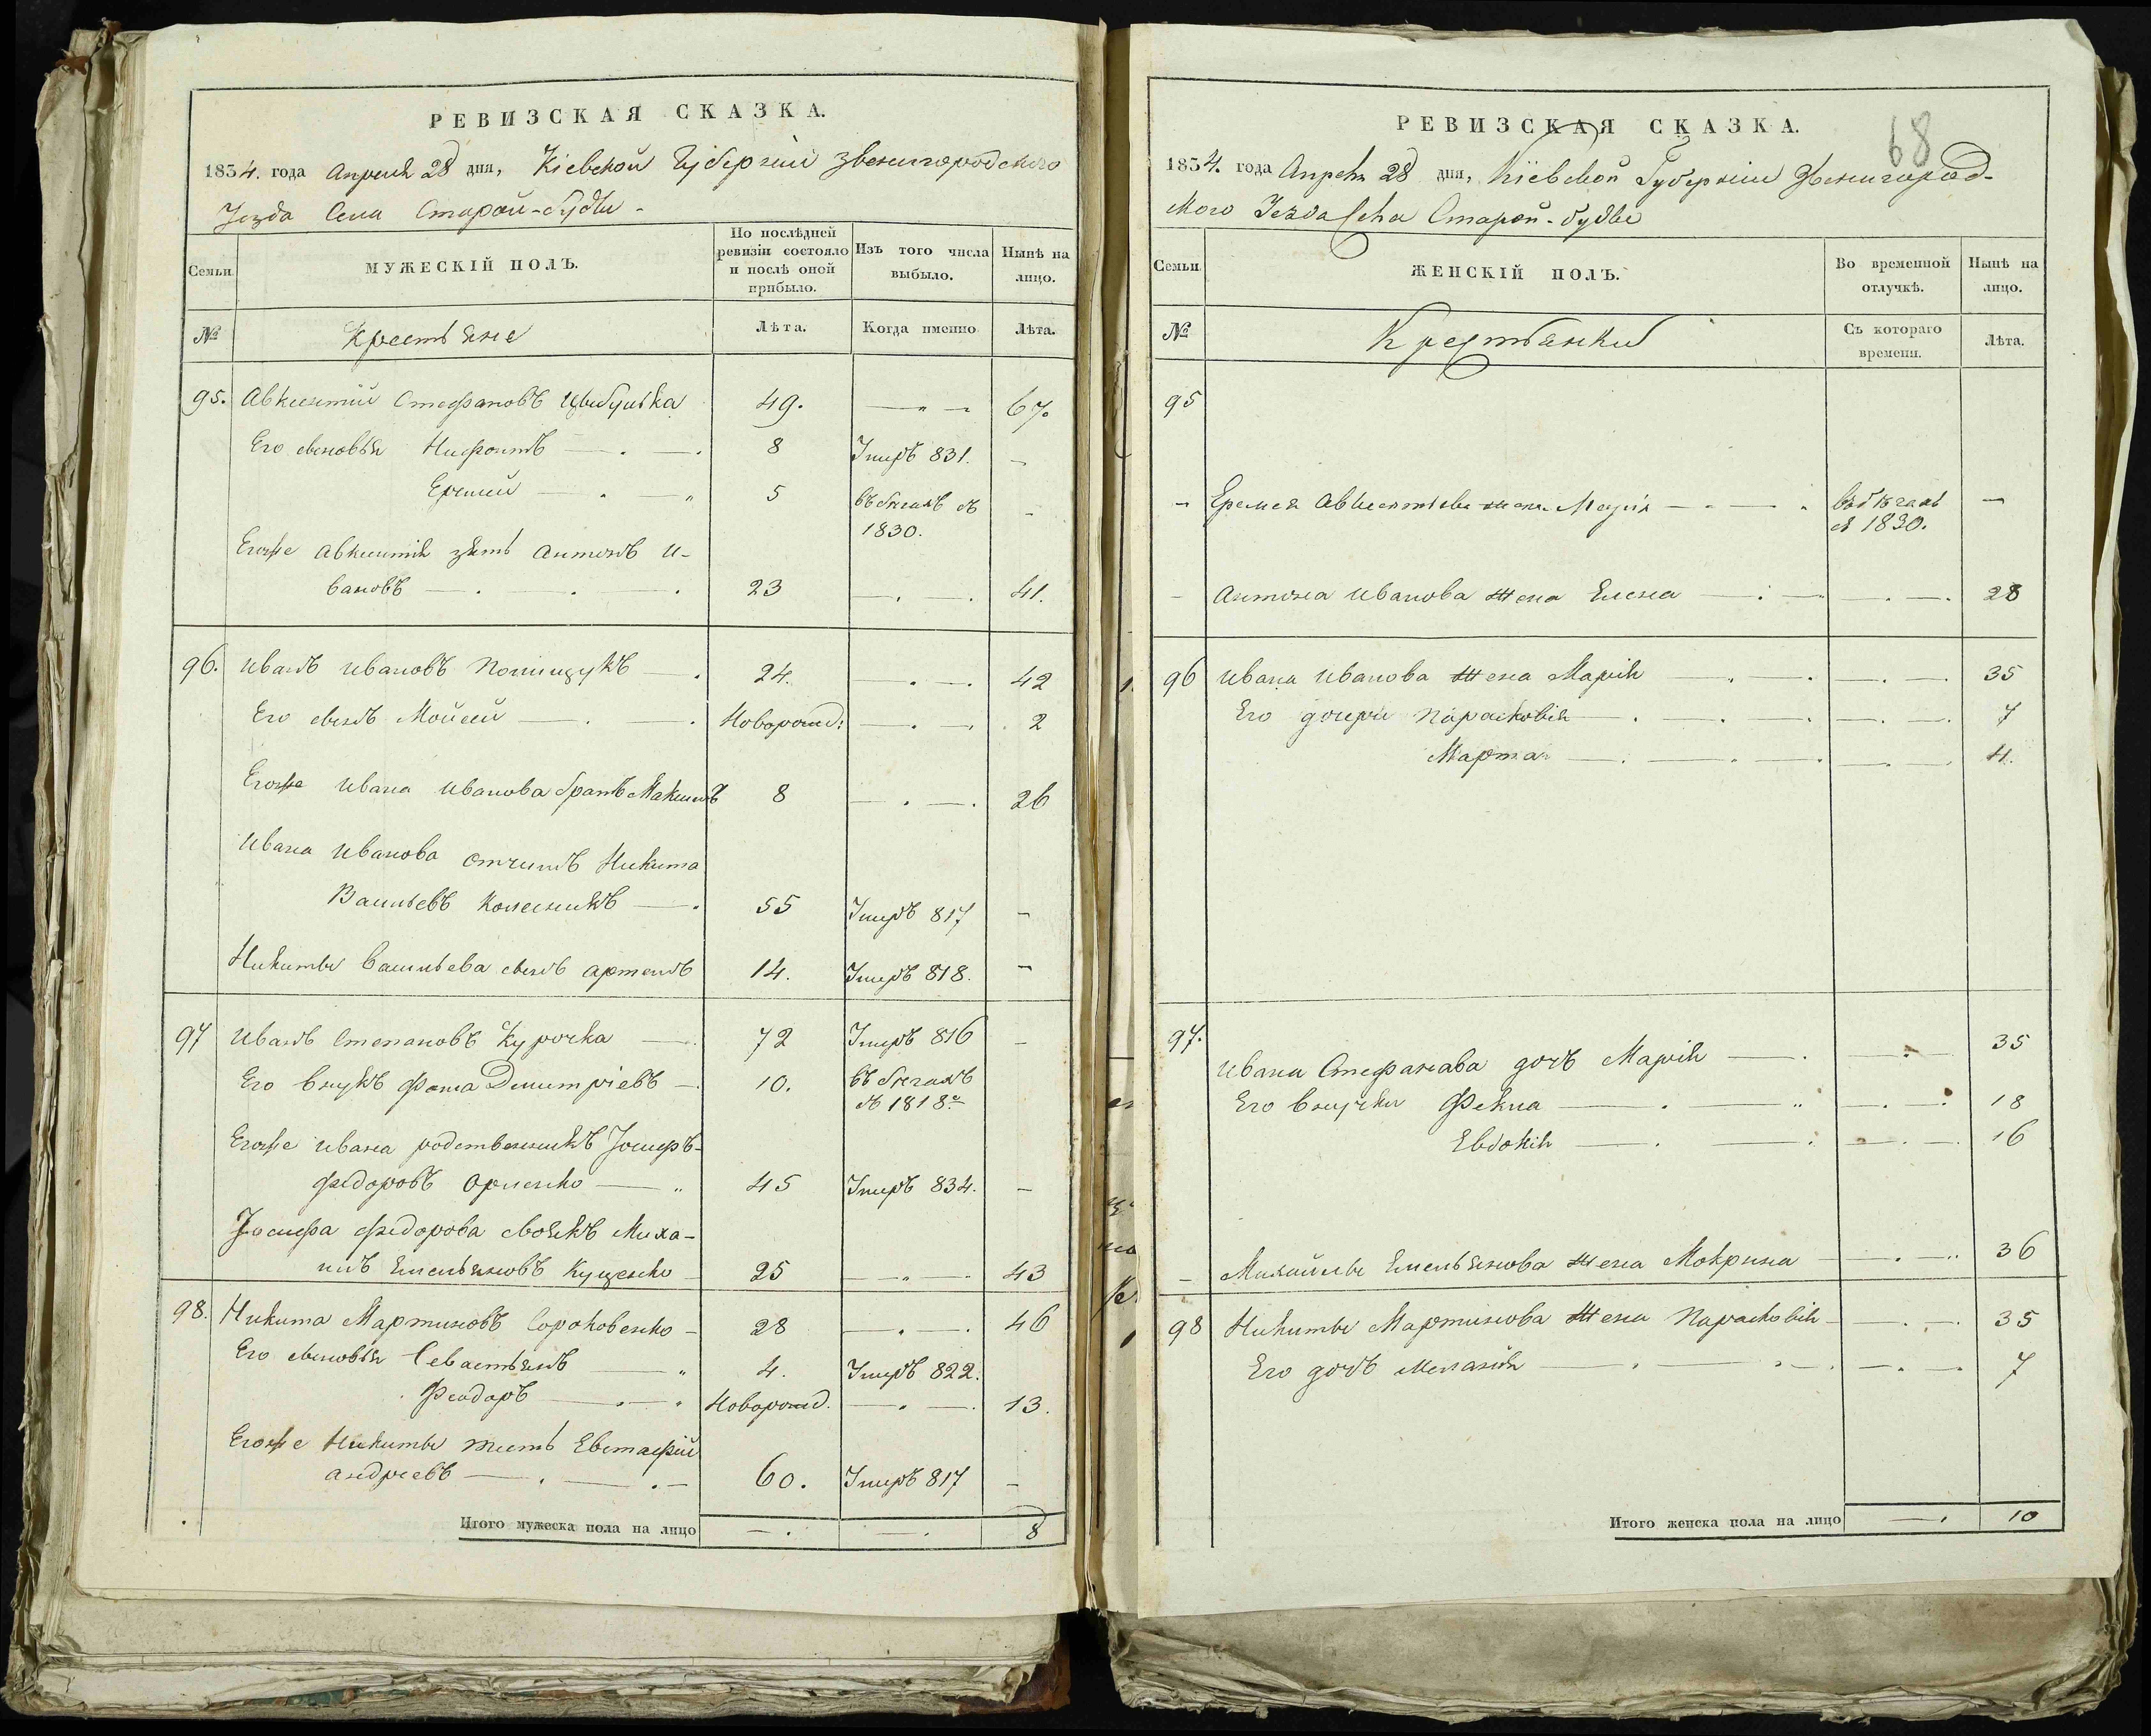 РЕВИЗСКАЯ СКАЗКА.
1834. года Апреля 28 дня, Кіевской Губерніи Звенигородского
Уезда Села Старой-Буды -
Семьи.
МУЖЕСКІЙ ПОЛЪ.
По послѣдней ревизіи состояло и послѣ оной прибыло.
Изъ того числа выбыло.
Нынѣ на лицо.
№
Крестьяне
Лѣта.
Когда именно
Лѣта.
95. Авксентий Стефановъ Цыбулька 49. — 67.
Его сыновья Нифонтъ 8 Умеръ 831. -
Еремей 5 въ бегахъ съ -
1830.
Егоже Авксентия зять Антонъ И-
вановъ 23 — 41.
96. Иванъ Ивановъ Полищукъ 24. — 42
Его сынъ Мойсей Новорожд: — 2
Егоже Ивана Иванова братъ Максимъ 8 — 26
Ивана Иванова отчимъ Никита
Васильевъ Колесникъ 55 Умеръ 817 -
Никиты Васильева сынъ Артемъ 14. Умеръ 818. -
97 Иванъ Степановъ Курочка 72 Умеръ 816 -
Его внукъ Фома Дмитріевъ 10. въ бегахъ
съ 1818г.
Егоже Ивана родственникъ Іосифъ
Федоровъ Орленко 45 Умеръ 834. -
Іосифа Федорова своякъ Миха-
илъ Емельяновъ Куценко 25 — 43
98. Никита Мартиновъ Сороковенко 28 — 46
Его сыновья Севастьянъ 4. Умеръ 822.
Феодоръ Новорожд. — 13.
Егоже Никиты тесть Евстафій
Андреевъ 60. Умеръ 817 -
Итого мужеска пола на лицо — — 8
68
РЕВИЗСКАЯ СКАЗКА.
1834. года Апреля 28 дня, Кіевской Губерніи Звенигород-
ского Уезда Села Старой-Буды
Семьи.
ЖЕНСКІЙ ПОЛЪ.
Во временной отлучкѣ.
Нынѣ на лицо.
№
Крестьянки
Съ котораго времени.
Лѣта.
95
- Еремея Авксентьева жена Марія въ бѣгахъ -
съ 1830.
- Антона Иванова жена Елена — 28
96 Ивана Иванова жена Марія — 35
Его дочери Парасковія — 7
Марта — 4.
97. Ивана Стефанова дочь Марія — 35
Его внучки Фекла — 18
Евдокія — 16
- Михайлы Емельянова жена Мокрина — 36
98 Никиты Мартинова жена Парасковія — 35
Его дочь Меланія — 7
Итого женска пола на лицо — 10